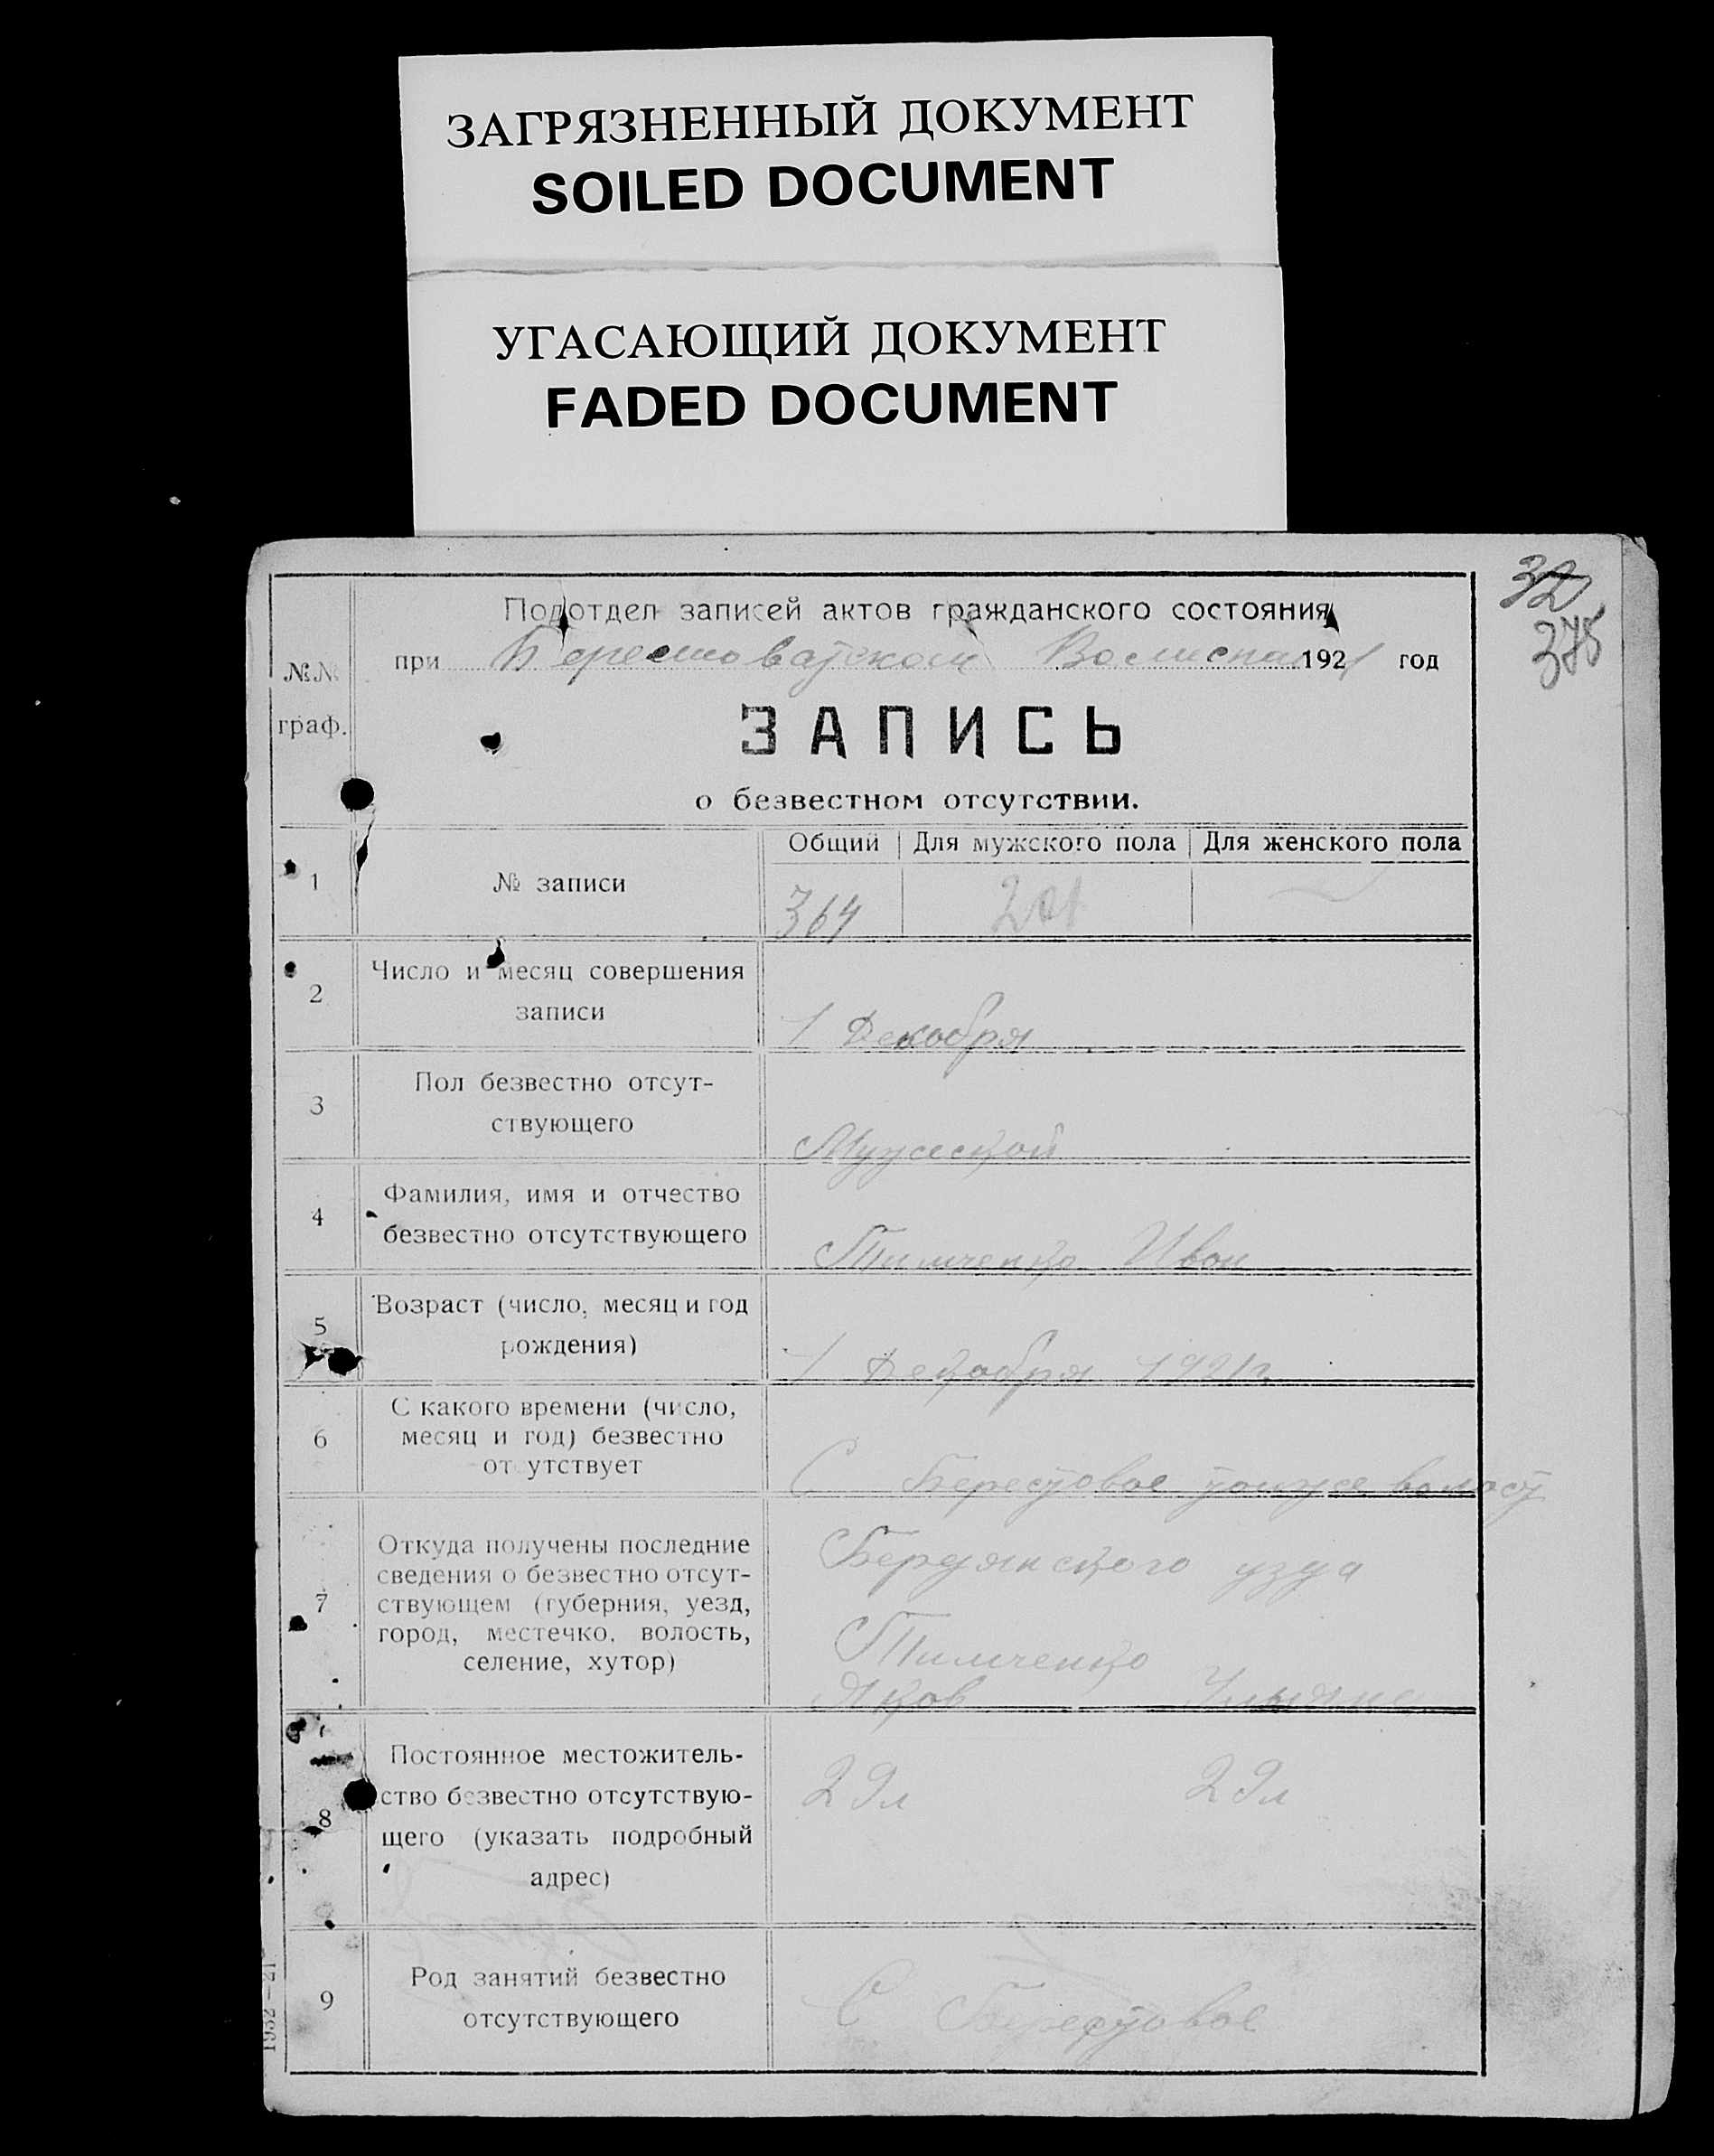 ЗАГРЯЗНЕННЫЙ ДОКУМЕНТ
SOILED DOCUMENT
УГАСАЮЩИЙ ДОКУМЕНТ
FADED DOCUMENT
32
375
Подотдел записей актов гражданского состояния
при Берестоватском Волиспол 1921 год
№№
граф.
ЗАПИСЬ
о безвестном отсутствии.
Общий Для мужского пола Для женского пола
1 № записи 364 201 —
2 Число и месяц совершения
записи
1 Декабря
3 Пол безвестно отсут-
ствующего
Мужеской
4 Фамилия, имя и отчество
безвестно отсутствующего
Тимченко Иван
5 Возраст (число, месяц и год
рождения)
1 Декабря 1921 г
6 С какого времени (число,
месяц и год) безвестно
от утствует
С Берестовое волост
7 Откуда получены последние
сведения о безвестно отсут-
ствующем (губерния, уезд,
город, местечко, волость,
селение, хутор)
Бердянского узда
Тимченко
Яков Ульяна
8 Постоянное местожитель-
ство безвестно отсутствую-
щего (указать подробный
адрес)
29 л 29 л
9 Род занятий безвестно
отсутствующего
С Берестовое
1932—21